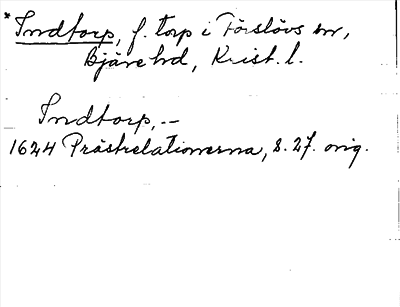 *Indtorp, f. torp i Förslövs sn,
Bjäre hd, Krist. l.
Indtorp, --
1624 Prästrelationerna, s. 27. orig.